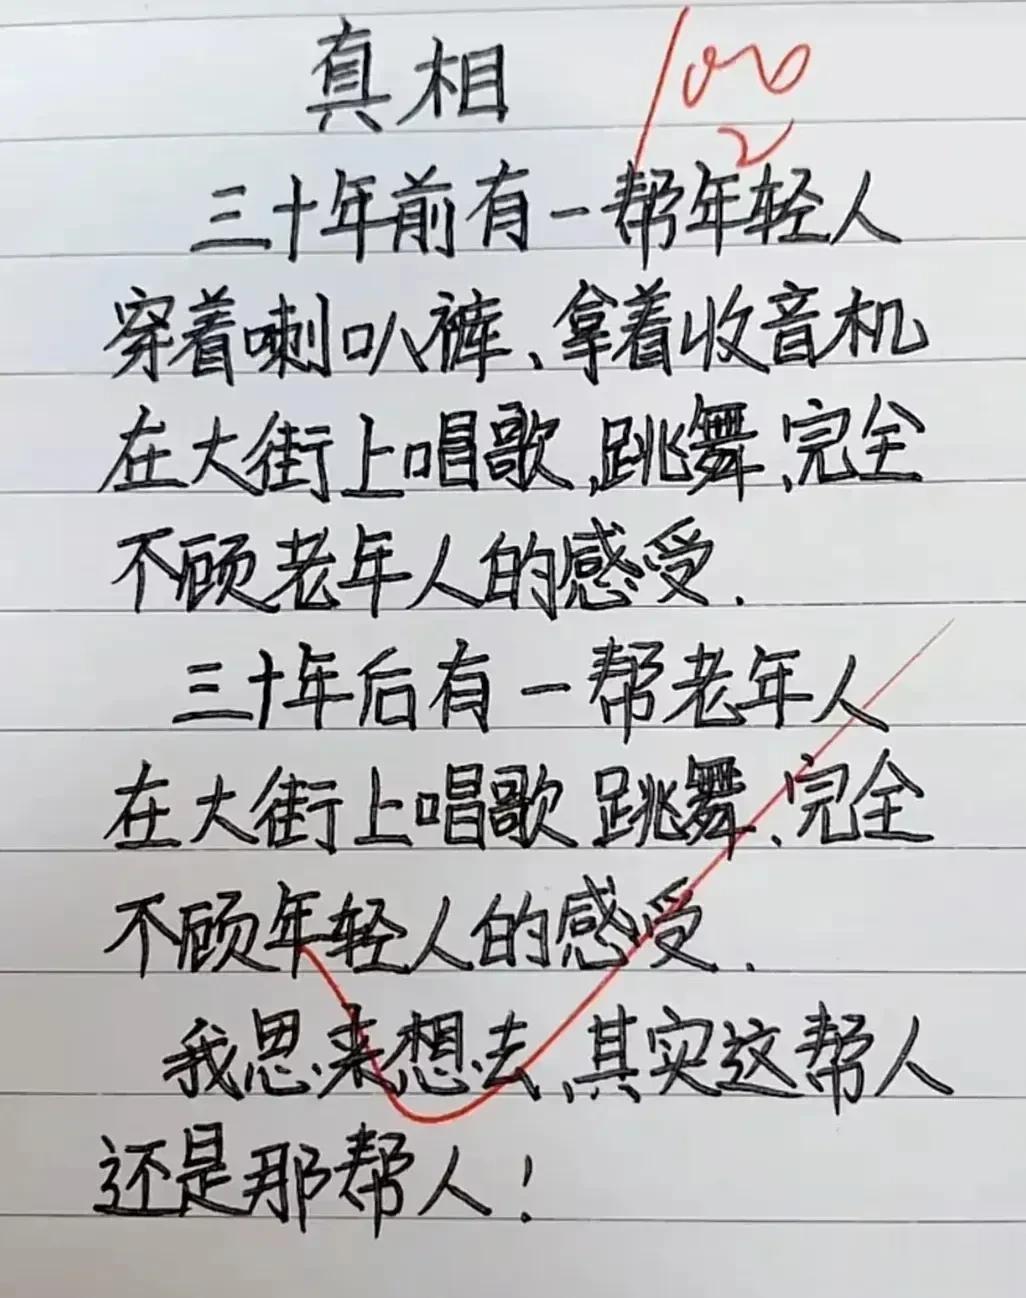 真相
100
三十年前有一帮年轻人
穿着喇叭裤、拿着收音机
在大街上唱歌,跳舞,完全
不顾老年人的感受.
三十年后有一帮老年人
在大街上唱歌 跳舞、完全
不顾年轻人的感受.
我思来想去,其实这帮人
还是那帮人!